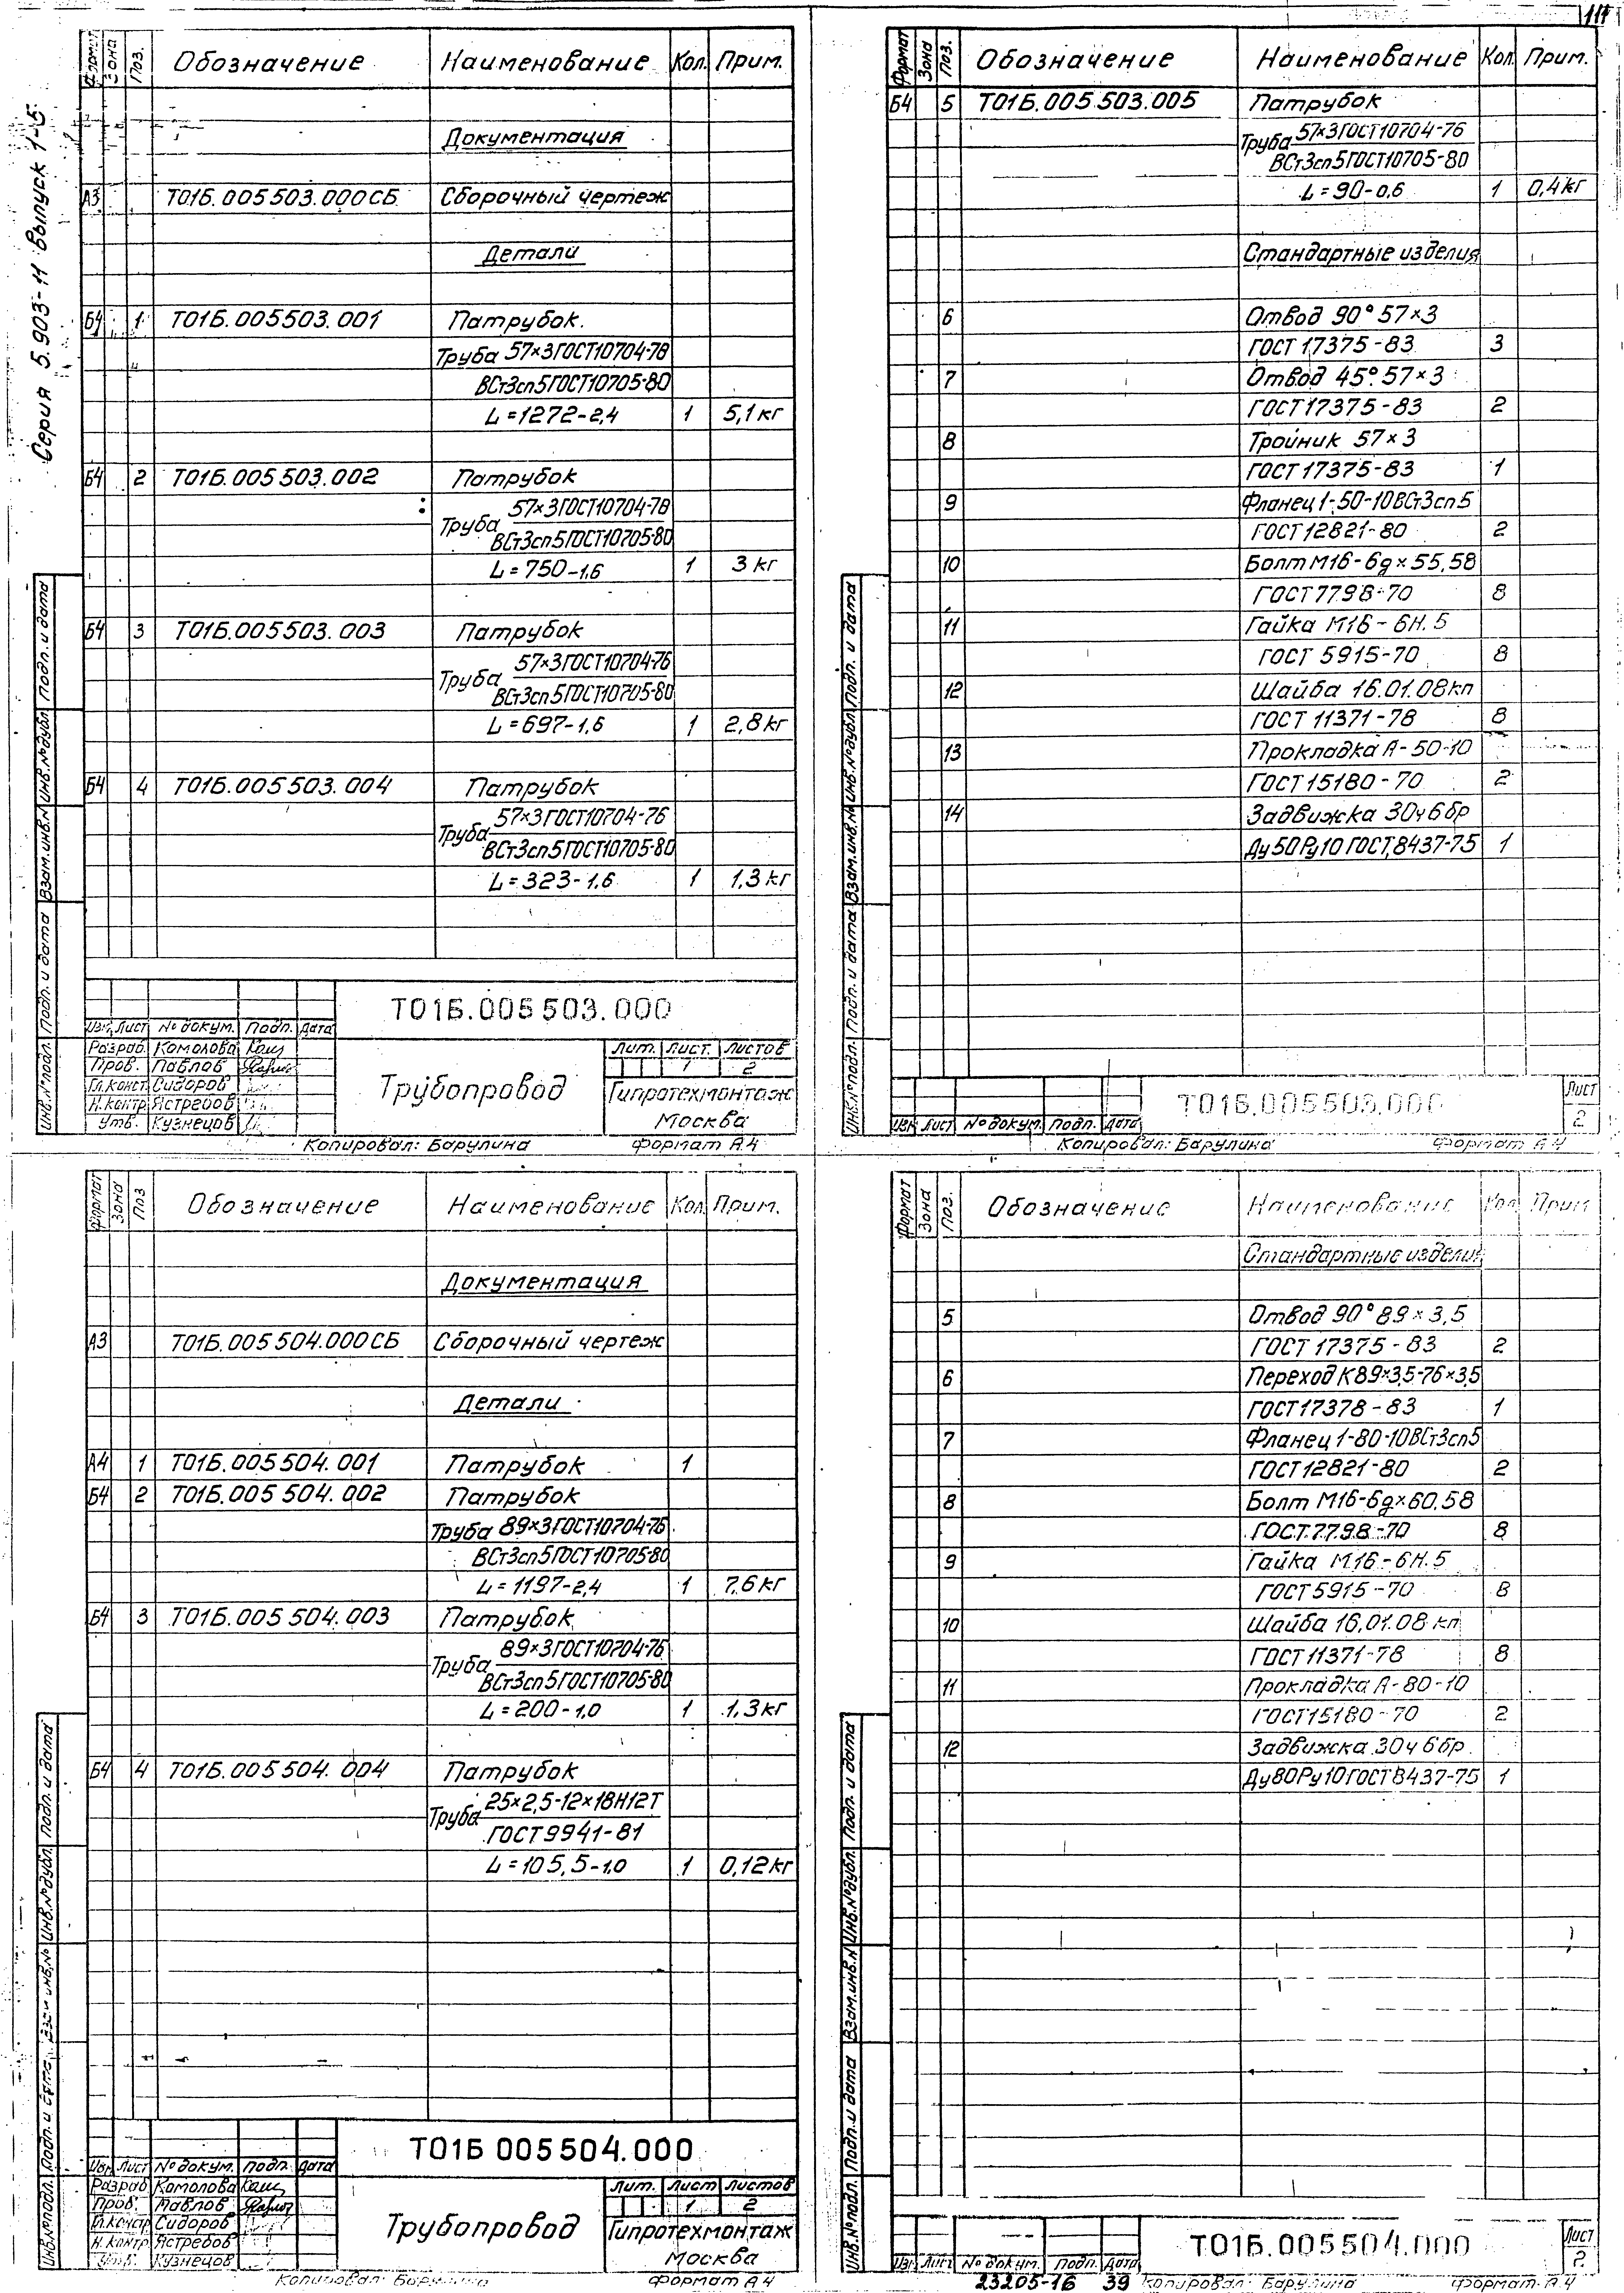 111
Серия 5.903-11 Выпуск 1-5
Формат Зона Поз. Обозначение Наименование Кол. Прим.
Документация
А3 Т01Б.005503.000СБ Сборочный чертеж
Детали
Б4 1 Т01Б.005503.001 Патрубок.
Труба 57×3ГОСТ10704-76
ВСт3сп5ГОСТ10705-80
L=1272-2,4 1 5,1кг
Б4 2 Т01Б.005503.002 Патрубок
57×3ГОСТ10704-76
Труба
ВСт3сп5ГОСТ10705-80
L=750-1,6 1 3 кг
Б4 3 Т01Б.005503.003 Патрубок
57×3ГОСТ10704-76
Труба
ВСт3сп5ГОСТ10705-80
L=697-1,6 1 2,8кг
Б4 4 Т01Б.005503.004 Патрубок
57×3ГОСТ10704-76
Труба
ВСт3сп5ГОСТ10705-80
L=323-1,6 1 1,3кг
Инв.№подл. Подп. и дата Взам.инв.№ Инв.№дубл. Подп. и дата
Т01Б.005503.000
Изм. Лист № докум. Подп. Дата
Разраб. Комолова
Пров. Павлов
Гл.конст. Сидоров
Н.контр. Ястребов
Утв. Кузнецов
Трубопровод
Лит. Лист. Листов
1 2
Гипротехмонтаж
Москва
Копировал: Барулина формат А4
Формат Зона Поз. Обозначение Наименование Кол. Прим.
Б4 5 Т01Б.005.503.005 Патрубок
57×3ГОСТ10704-76
Труба
ВСт3сп5ГОСТ10705-80
L=90-0,6 1 0,4кг
Стандартные изделия
6 Отвод 90° 57×3
ГОСТ 17375-83 3
7 Отвод 45° 57×3
ГОСТ17375-83 2
8 Тройник 57×3
ГОСТ17375-83 1
9 Фланец 1-50-10ВСт3сп5
ГОСТ12821-80 2
10 Болт М16-6g×55.58
ГОСТ7798-70 8
11 Гайка М16-6Н.5
ГОСТ 5915-70 8
12 Шайба 16.01.08кп
ГОСТ 11371-78 8
13 Прокладка А-50-10
ГОСТ15180-70 2
14 Задвижка 30ч6бр
Ду50Ру10 ГОСТ8437-75 1
Инв.№подл. Подп. и дата Взам.инв.№ Инв.№дубл. Подп. и дата
Изм. Лист № докум. Подп. Дата
Т01Б.005503.000
Лист
2
Копировал: Барулина формат А4
Формат Зона Поз. Обозначение Наименование Кол. Прим.
Документация
А3 Т01Б.005504.000СБ Сборочный чертеж
Детали
А4 1 Т01Б.005504.001 Патрубок 1
Б4 2 Т01Б.005504.002 Патрубок
Труба 89×3ГОСТ10704-76
ВСт3сп5ГОСТ10705-80
L=1197-2,4 1 7,6кг
Б4 3 Т01Б.005504.003 Патрубок
89×3ГОСТ10704-76
Труба
ВСт3сп5ГОСТ10705-80
L=200-1,0 1 1,3кг
Б4 4 Т01Б.005504.004 Патрубок
25×2,5-12×18Н12Т
Труба
ГОСТ9941-81
L=105,5-1,0 1 0,12кг
Инв.№подл. Подп. и дата Взам.инв.№ Инв.№дубл. Подп. и дата
Т01Б 005504.000
Изм. Лист № докум. Подп. Дата
Разраб. Комолова
Пров. Павлов
Гл.конст. Сидоров
Н.контр. Ястребов
Утв. Кузнецов
Трубопровод
Лит. Лист Листов
1 2
Гипротехмонтаж
Москва
Копировал: Барулина формат А4
Формат Зона Поз. Обозначение Наименование Кол. Прим
Стандартные изделия
5 Отвод 90° 89×3,5
ГОСТ 17375-83 2
6 Переход К89×3,5-76×3,5
ГОСТ17378-83 1
7 Фланец 1-80-10ВСт3сп5
ГОСТ12821-80 2
8 Болт М16-6g×60.58
ГОСТ.7798-70 8
9 Гайка М16-6Н.5
ГОСТ5915-70 8
10 Шайба 16.01.08 кп
ГОСТ11371-78 8
11 Прокладка А-80-10
ГОСТ15180-70 2
12 Задвижка 30ч6бр
Ду80Ру10ГОСТ8437-75 1
Инв.№подл. Подп. и дата Взам.инв.№ Инв.№дубл. Подп. и дата
Изм. Лист № докум. Подп. Дата
Т01Б.005504.000
Лист
2
23205-16 39 Копировал: Барулина формат А4